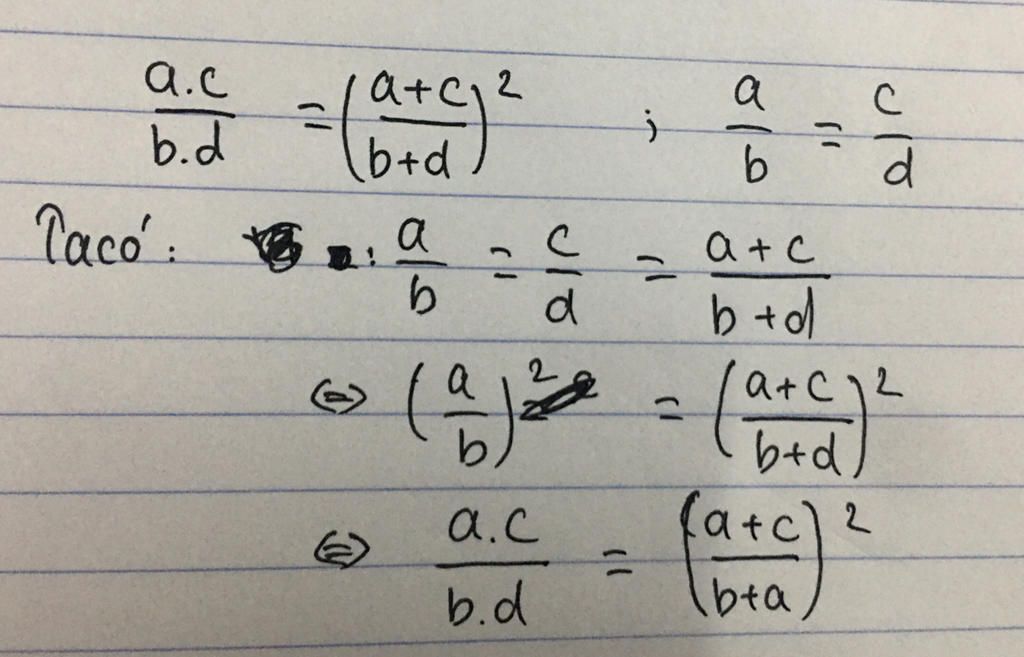 a.c/b.d = (a+c/b+d)² ; a/b = c/d
Tacó: a/b = c/d = a+c/b+d
⇔ (a/b)² = (a+c/b+d)²
⇔ a.c/b.d = (a+c/b+a)²